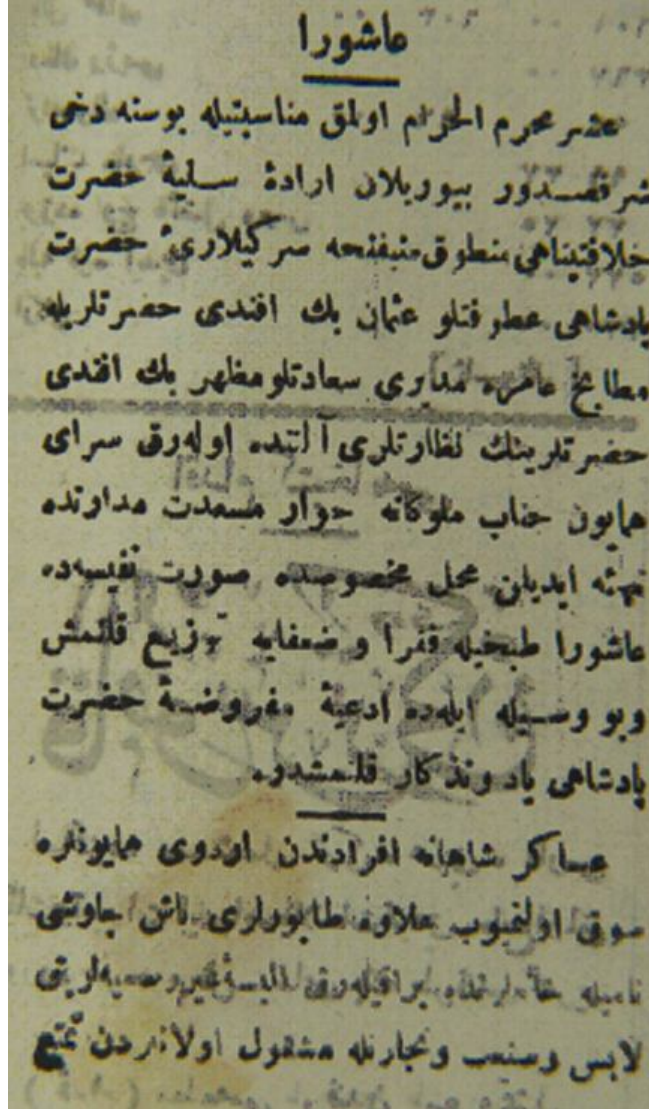 عاشورا
عشر محرم الحرام اولمق مناسبتیله بوسنه دخی
شرفصدور بیوریلان ارادۀ سنیۀ حضرت
خلافتپناهی منطوق منیفنجه سرکیلاری ٔ حضرت
پادشاهی عطوفتلو عثمان بك افندی حضرتلریله
مطابخ عامره مدیری سعادتلو مظهر بك افندی
حضرتلرینك نظارتلری آلتنده اوله‌رق سرای
همایون جناب ملوکانه جوار مسعدت مدارنده
تهیئه ایدیلن محل مخصوصده صورت نفیسه‌ده
عاشورا طبخیله فقرا و ضعفایه توزیع قلنمش
وبو وسیله ایله‌ده ادعیۀ مفروضۀ حضرت
پادشاهی یاد وتذکار قلنمشدر.
عساکر شاهانه افرادندن اردوی همایونلره
سوق اولنمیوب علاوه طابورلری باش چاوشی
نامیله براقیله‌رق البسۀ غیر رسمیه‌لرینی
لابس وصنعت وتجارتله مشغول اولانلردن تمتع